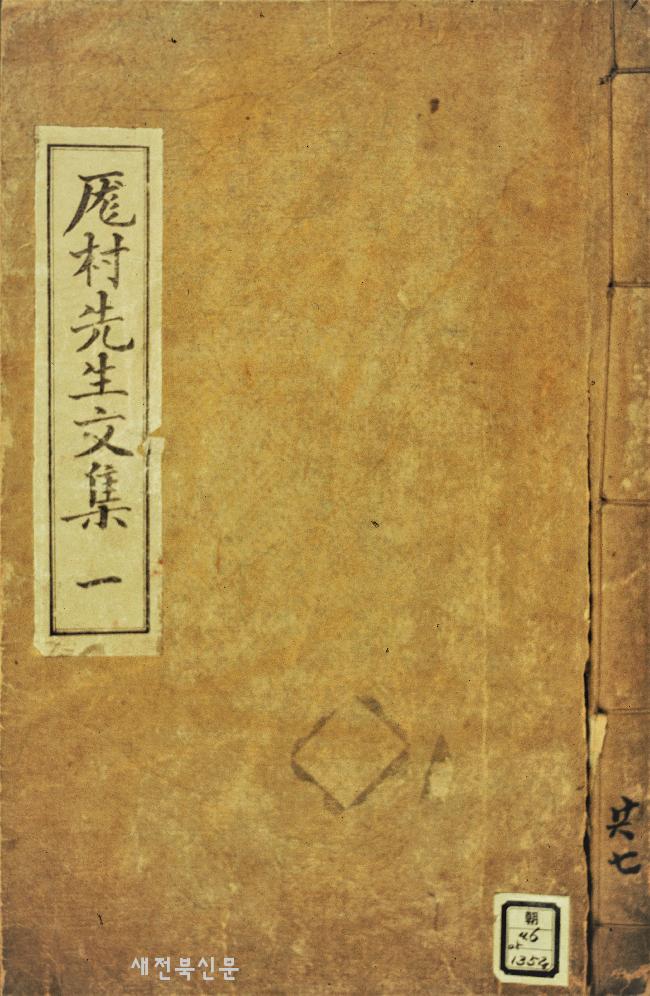 厖村先生文集 一
共七
朝
46
1352
새전북신문